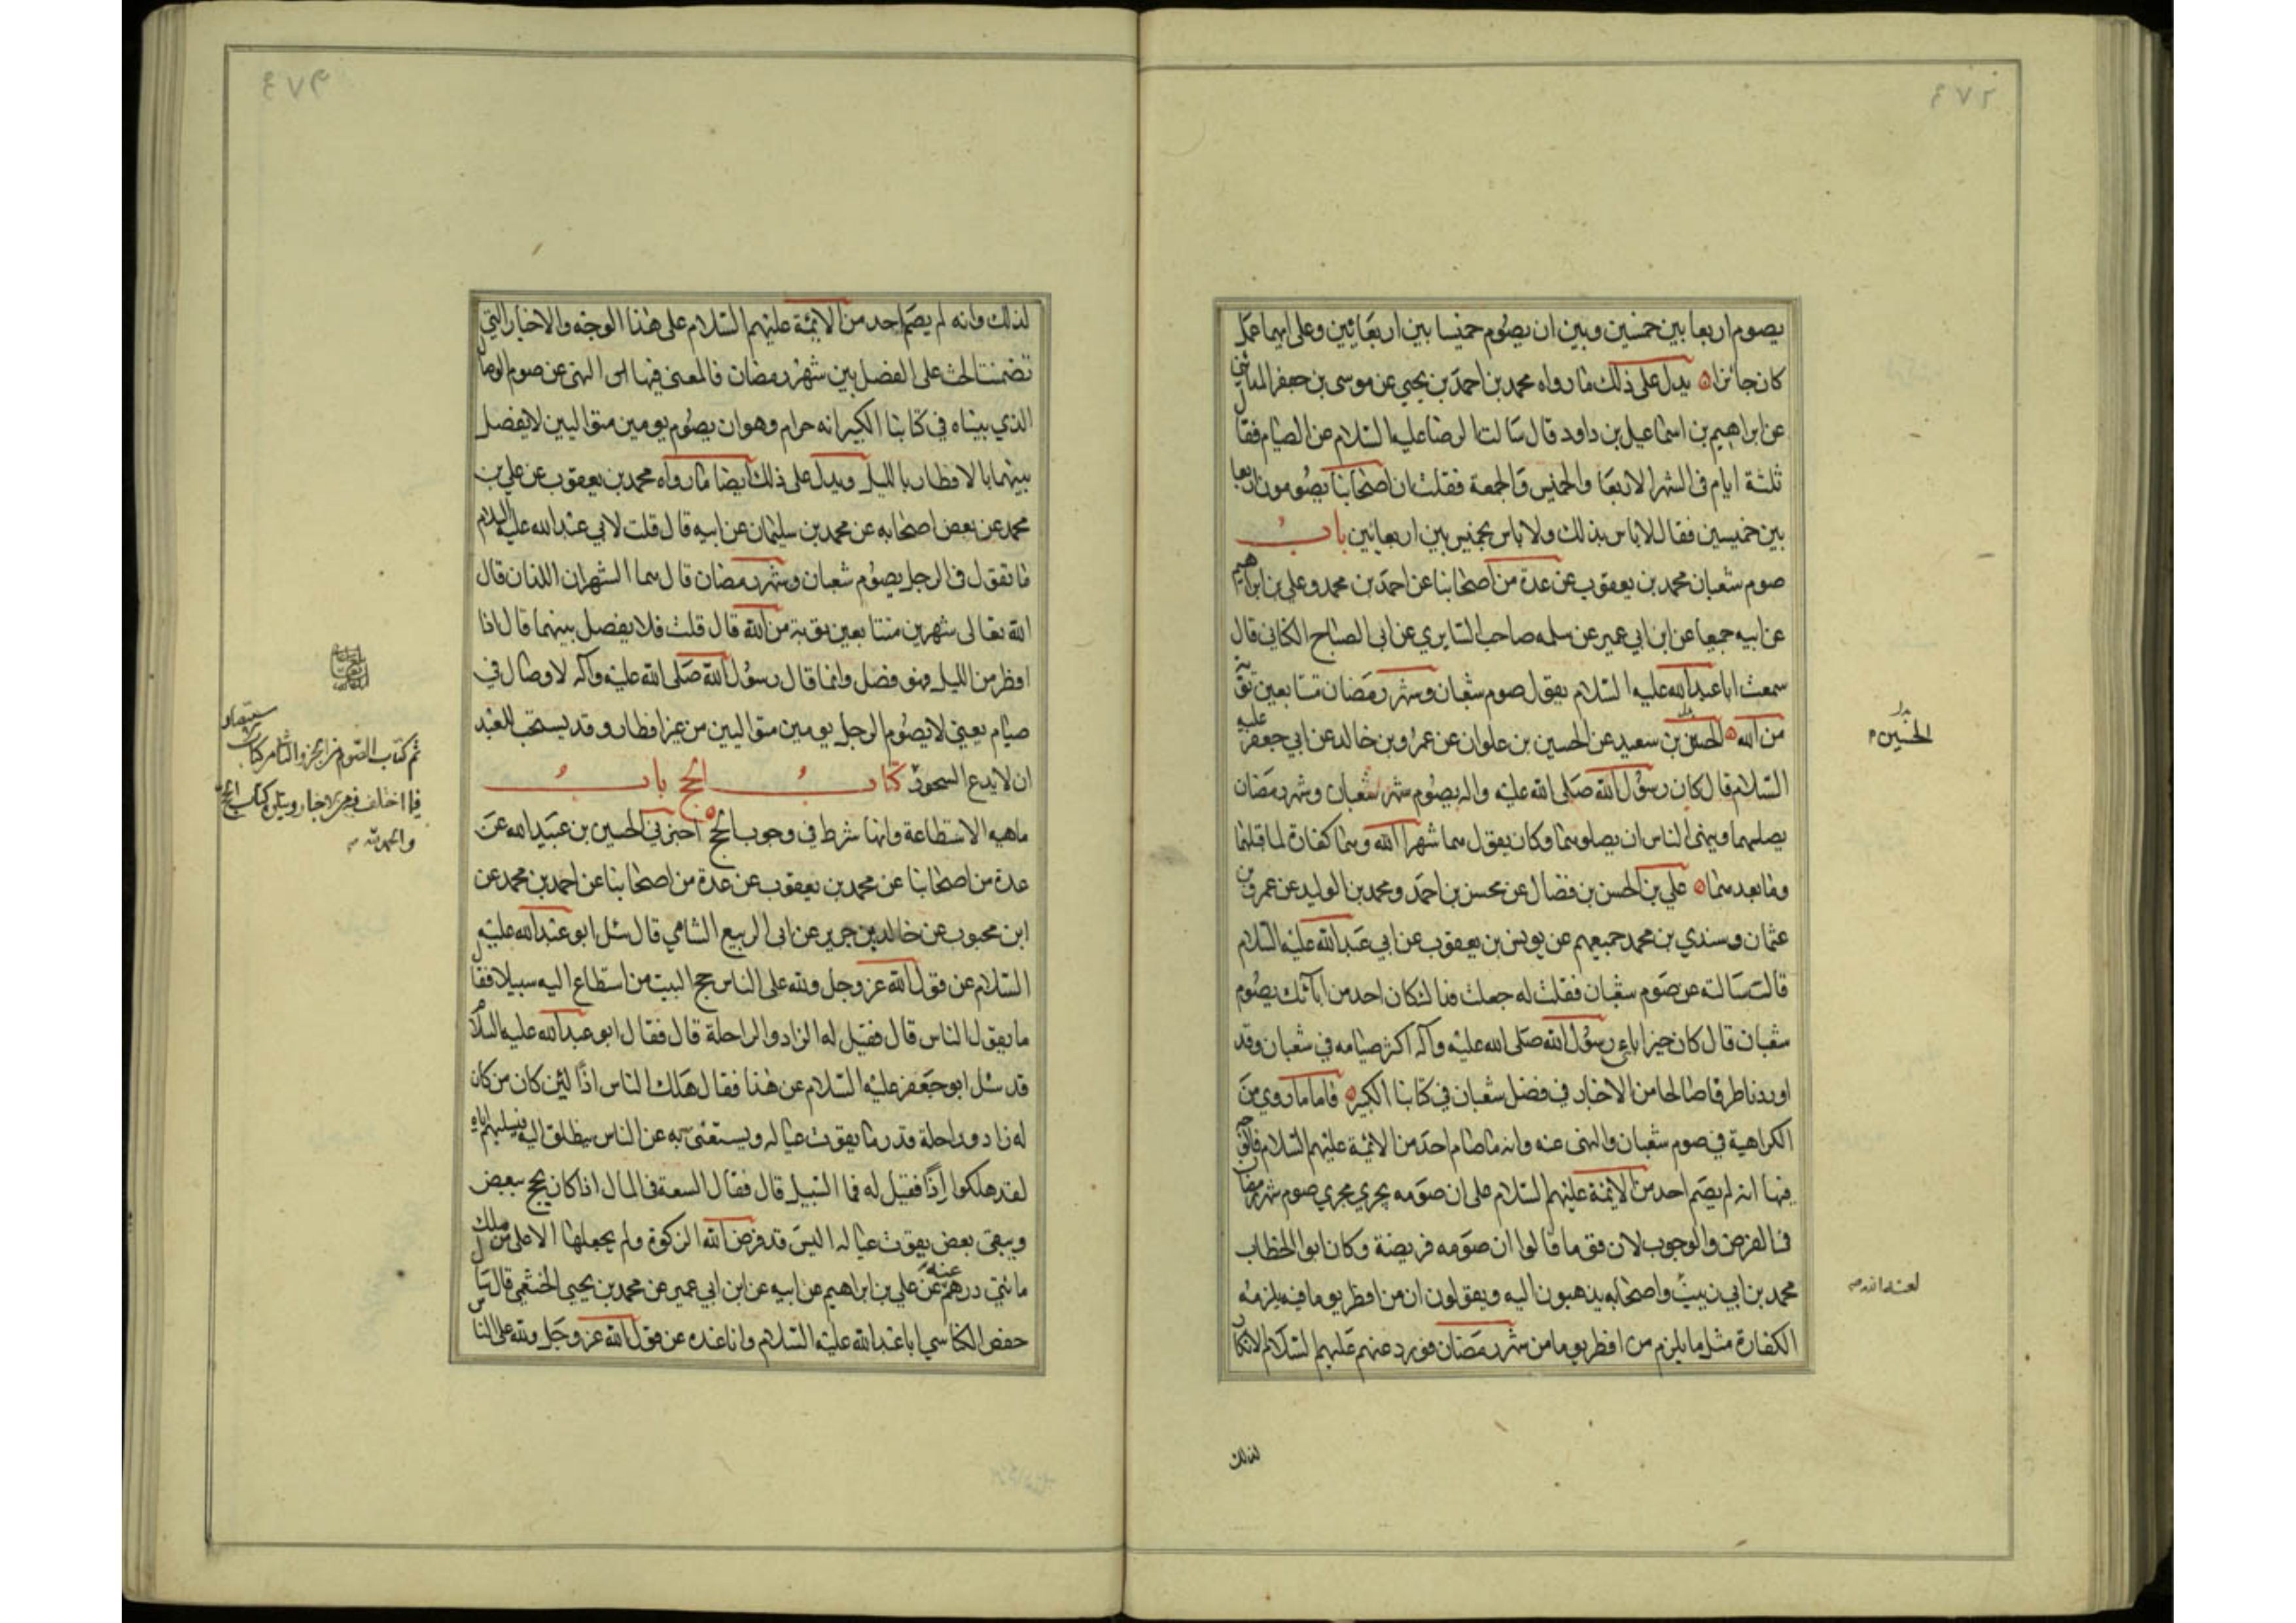 ٤٧٢
يصوم اربعا بين خمسين وبين ان يصوم خميسا بين اربعائين وعلى ايهما عمل
كان جائزا يدل على ذلك ما رواه محمد بن احمد بن يحيى عن موسى بن جعفر المدائني
عن ابراهيم بن اسماعيل بن داود قال سالت الرضا عليه السلام عن الصيام فقال
ثلثة ايام في الشهر الاربعا والخميس والجمعة فقلت ان اصحابنا يصومون اربعا
بين خميسين فقال لا باس بذلك ولا باس بخميس بين اربعائين باب
صوم شعبان محمد بن يعقوب عن عدة من اصحابنا عن احمد بن محمد وعلي بن ابراهيم
عن ابيه جميعا عن ابن ابي عمير عن سلمه صاحب السابري عن ابي الصباح الكناني قال
سمعت ابا عبد الله عليه السلام يقول صوم شعبان وشهر رمضان متتابعين توبة
من الله الحسن بن سعيد عن الحسين بن علوان عن عمرو بن خالد عن ابي جعفر عليه
السلام قال كان رسول الله صلى الله عليه واله يصوم شهر شعبان وشهر رمضان
يصلهما وينهى الناس ان يصلوهما وكان يقول هما شهرا الله وهما كفارة لما قبلهما
وما بعدهما علي بن الحسن بن فضال عن محسن بن احمد ومحمد بن الوليد عن عمرو بن
عثمان وسندي بن محمد جميعهم عن يونس بن يعقوب عن ابي عبد الله عليه السلام
قال سالته عن صوم شعبان فقلت له جعلت فداك كان احد من ابائك يصوم
شعبان قال كان خير ابائي رسول الله صلى الله عليه وآله اكثر صيامه في شعبان وقد
اوردنا طرفا صالحا من الاخبار في فضل شعبان في كتابنا الكبير فاما ما روي من
الكراهية في صوم شعبان والنهي عنه وانه ما صام احد من الائمة عليهم السلام فالوجه
فيها انه لم يصم احد من الائمة عليهم السلام على ان صومه يجري مجرى صوم شهر رمضان
في الفرض والوجوب لان قوما قالوا ان صومه فريضة وكان ابو الخطاب
محمد بن ابي زينب واصحابه يذهبون اليه ويقولون ان من افطر يوما فيه يلزمه
الكفارة مثل ما يلزم من افطر يوما من شهر رمضان فورد عنهم عليهم السلام الانكار
الحسين
لعنه الله
لذلك
٤٧٣
لذلك وانه لم يصم احد من الائمة عليهم السلام على هذا الوجه والاخبار التي
تضمنت الحث على الفصل بين شهر رمضان فالمعنى فيها النهي عن صوم الوصال
الذي بيناه في كتابنا الكبير انه حرام وهو ان يصوم يومين متواليين لا يفصل
بينهما بالافطار بالليل ويدل على ذلك ايضا ما رواه محمد بن يعقوب عن علي بن
محمد عن بعض اصحابه عن محمد بن سليمان عن ابيه قال قلت لابي عبد الله عليه السلام
ما تقول في الرجل يصوم شعبان وشهر رمضان قال هما الشهران اللذان قال
الله تعالى شهرين متتابعين توبة من الله قال قلت فلا يفصل بينهما قال اذا
افطر من الليل فهو فصل وانما قال رسول الله صلى الله عليه وآله لا وصال في
صيام يعني لا يصوم الرجل يومين متواليين من غير افطار وقد يستحب للعبد
ان لا يدع السحور كتاب الحج باب
ماهية الاستطاعة وانها شرط في وجوب الحج اخبرني الحسين بن عبيد الله عن
عدة من اصحابنا عن محمد بن يعقوب عن عدة من اصحابنا عن احمد بن محمد عن
ابن محبوب عن خالد بن جرير عن ابي الربيع الشامي قال سئل ابو عبد الله عليه
السلام عن قول الله عز وجل ولله على الناس حج البيت من استطاع اليه سبيلا فقال
ما يقول الناس قال فقيل له الزاد والراحلة قال فقال ابو عبد الله عليه السلام
قد سئل ابو جعفر عليه السلام عن هذا فقال هلك الناس اذا لئن كان من كان
له زاد وراحلة قدر ما يقوت عياله ويستغنى به عن الناس ينطلق اليه فيسلبهم اياه
لقد هلكوا اذا فقيل له فما السبيل قال فقال السعة في المال اذا كان يحج ببعض
ويبقى بعض يقوت عياله اليس قد فرض الله الزكوة ولم يجعلها الا على من ملك
مائتي درهم عنه عن علي بن ابراهيم عن ابيه عن ابن ابي عمير عن محمد بن يحيى الخثعمي قال سال
حفص الكناسي ابا عبد الله عليه السلام وانا عنده عن قول الله عز وجل ولله على الناس
تم كتاب الصوم من الجزو الثاني من كتاب استبصار
فيما اختلف فيه من الاخبار ويتلوه كتاب الحج
والحمد لله